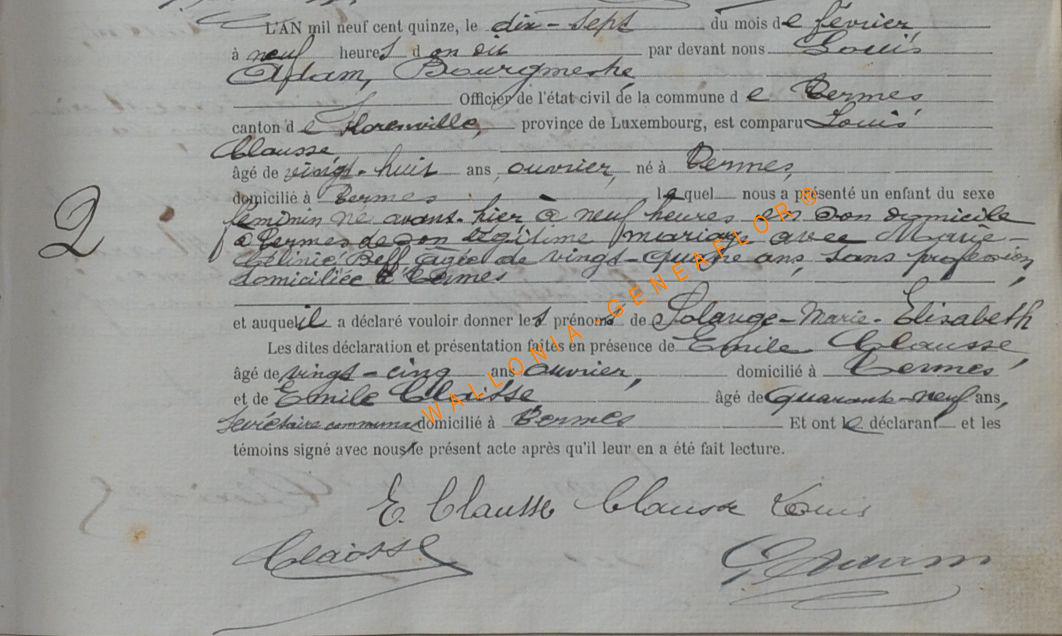 L'AN mil neuf cent quinze, le dix-sept du mois de février
à neuf heures d on dit par devant nous Louis
Adam, Bourgmestre,
Officier de l'état civil de la commune de Termes
canton de Florenville, province de Luxembourg, est comparu Louis
Clausse
âgé de vingt-huit ans, ouvrier, né à Termes,
domicilié à Termes lequel nous a présenté un enfant du sexe
féminin né avant-hier à neuf heures en son domicile
à Termes de son légitime mariage avec Marie-
Bell âgée de vingt-quatre ans, sans profession,
domiciliée à Termes
2
et auquel il a déclaré vouloir donner les prénoms de Solange-Marie-Elisabeth
Les dites déclaration et présentation faites en présence de Emile Clausse,
âgé de vingt-cinq ans ouvrier, domicilié à Termes
et de Emile Claisse âgé de quarante-neuf ans,
Secrétaire communal domicilié à Termes Et ont le déclarant et les
témoins signé avec nous le présent acte après qu'il leur en a été fait lecture.
E. Clausse Clausse Louis
Claisse Adam
WALLONIA-GENEAFLOR®